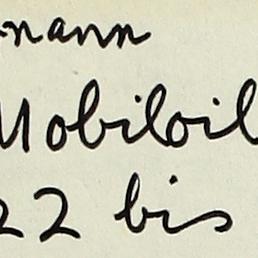 nann
Mobiloil
22 bis